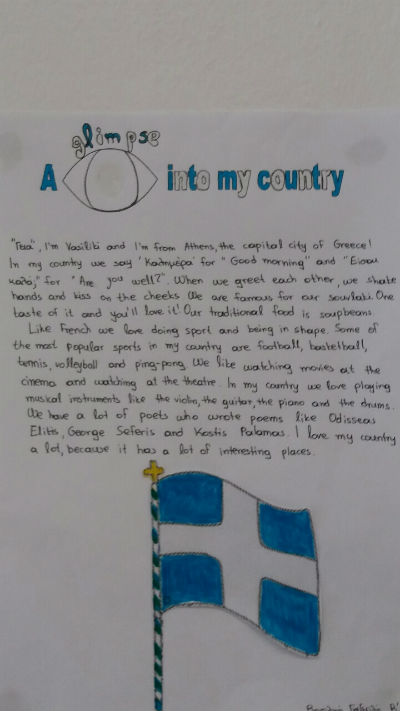 A glimpse into my country
"Γεια", I'm Vasiliki and I'm from Athens, the capital city of Greece!
In my country we say 'Καλημέρα' for "Good morning" and "Είσαι
καλά;" for "Are you well?". When we greet each other, we shake
hands and kiss on the cheeks. We are famous for our souvlaki. One
taste of it and you'll love it! Our traditional food is soupbeans.
Like French we love doing sport and being in shape. Some of
the most popular sports in my country are football, basketball,
tennis, volleyball and ping-pong. We like watching movies at the
cinema and watching at the theatre. In my country we love playing
musical instruments like the violin, the guitar, the piano and the drums.
We have a lot of poets who wrote poems like Odisseas
Elitis, George Seferis and Kostis Palamas. I love my country
a lot, because it has a lot of interesting places.